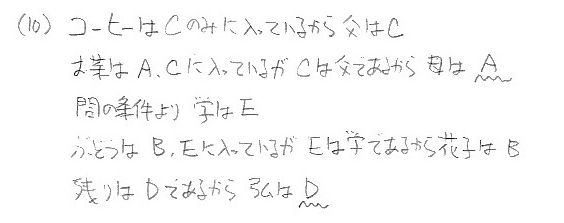 (10) コーヒーはCのみに入っているから父はC
お茶はA、Cに入っているがCは父であるから母はA
問の条件より学はE
ぶどうはB、Eに入っているがEは学であるから花子はB
残りはDであるから弘はD